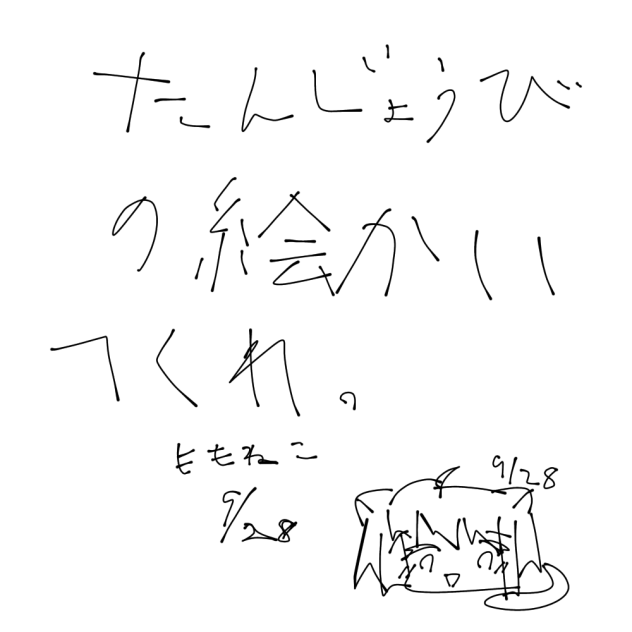 たんじょうび
の絵かい
てくれ。
ももねこ
9/28
9/28